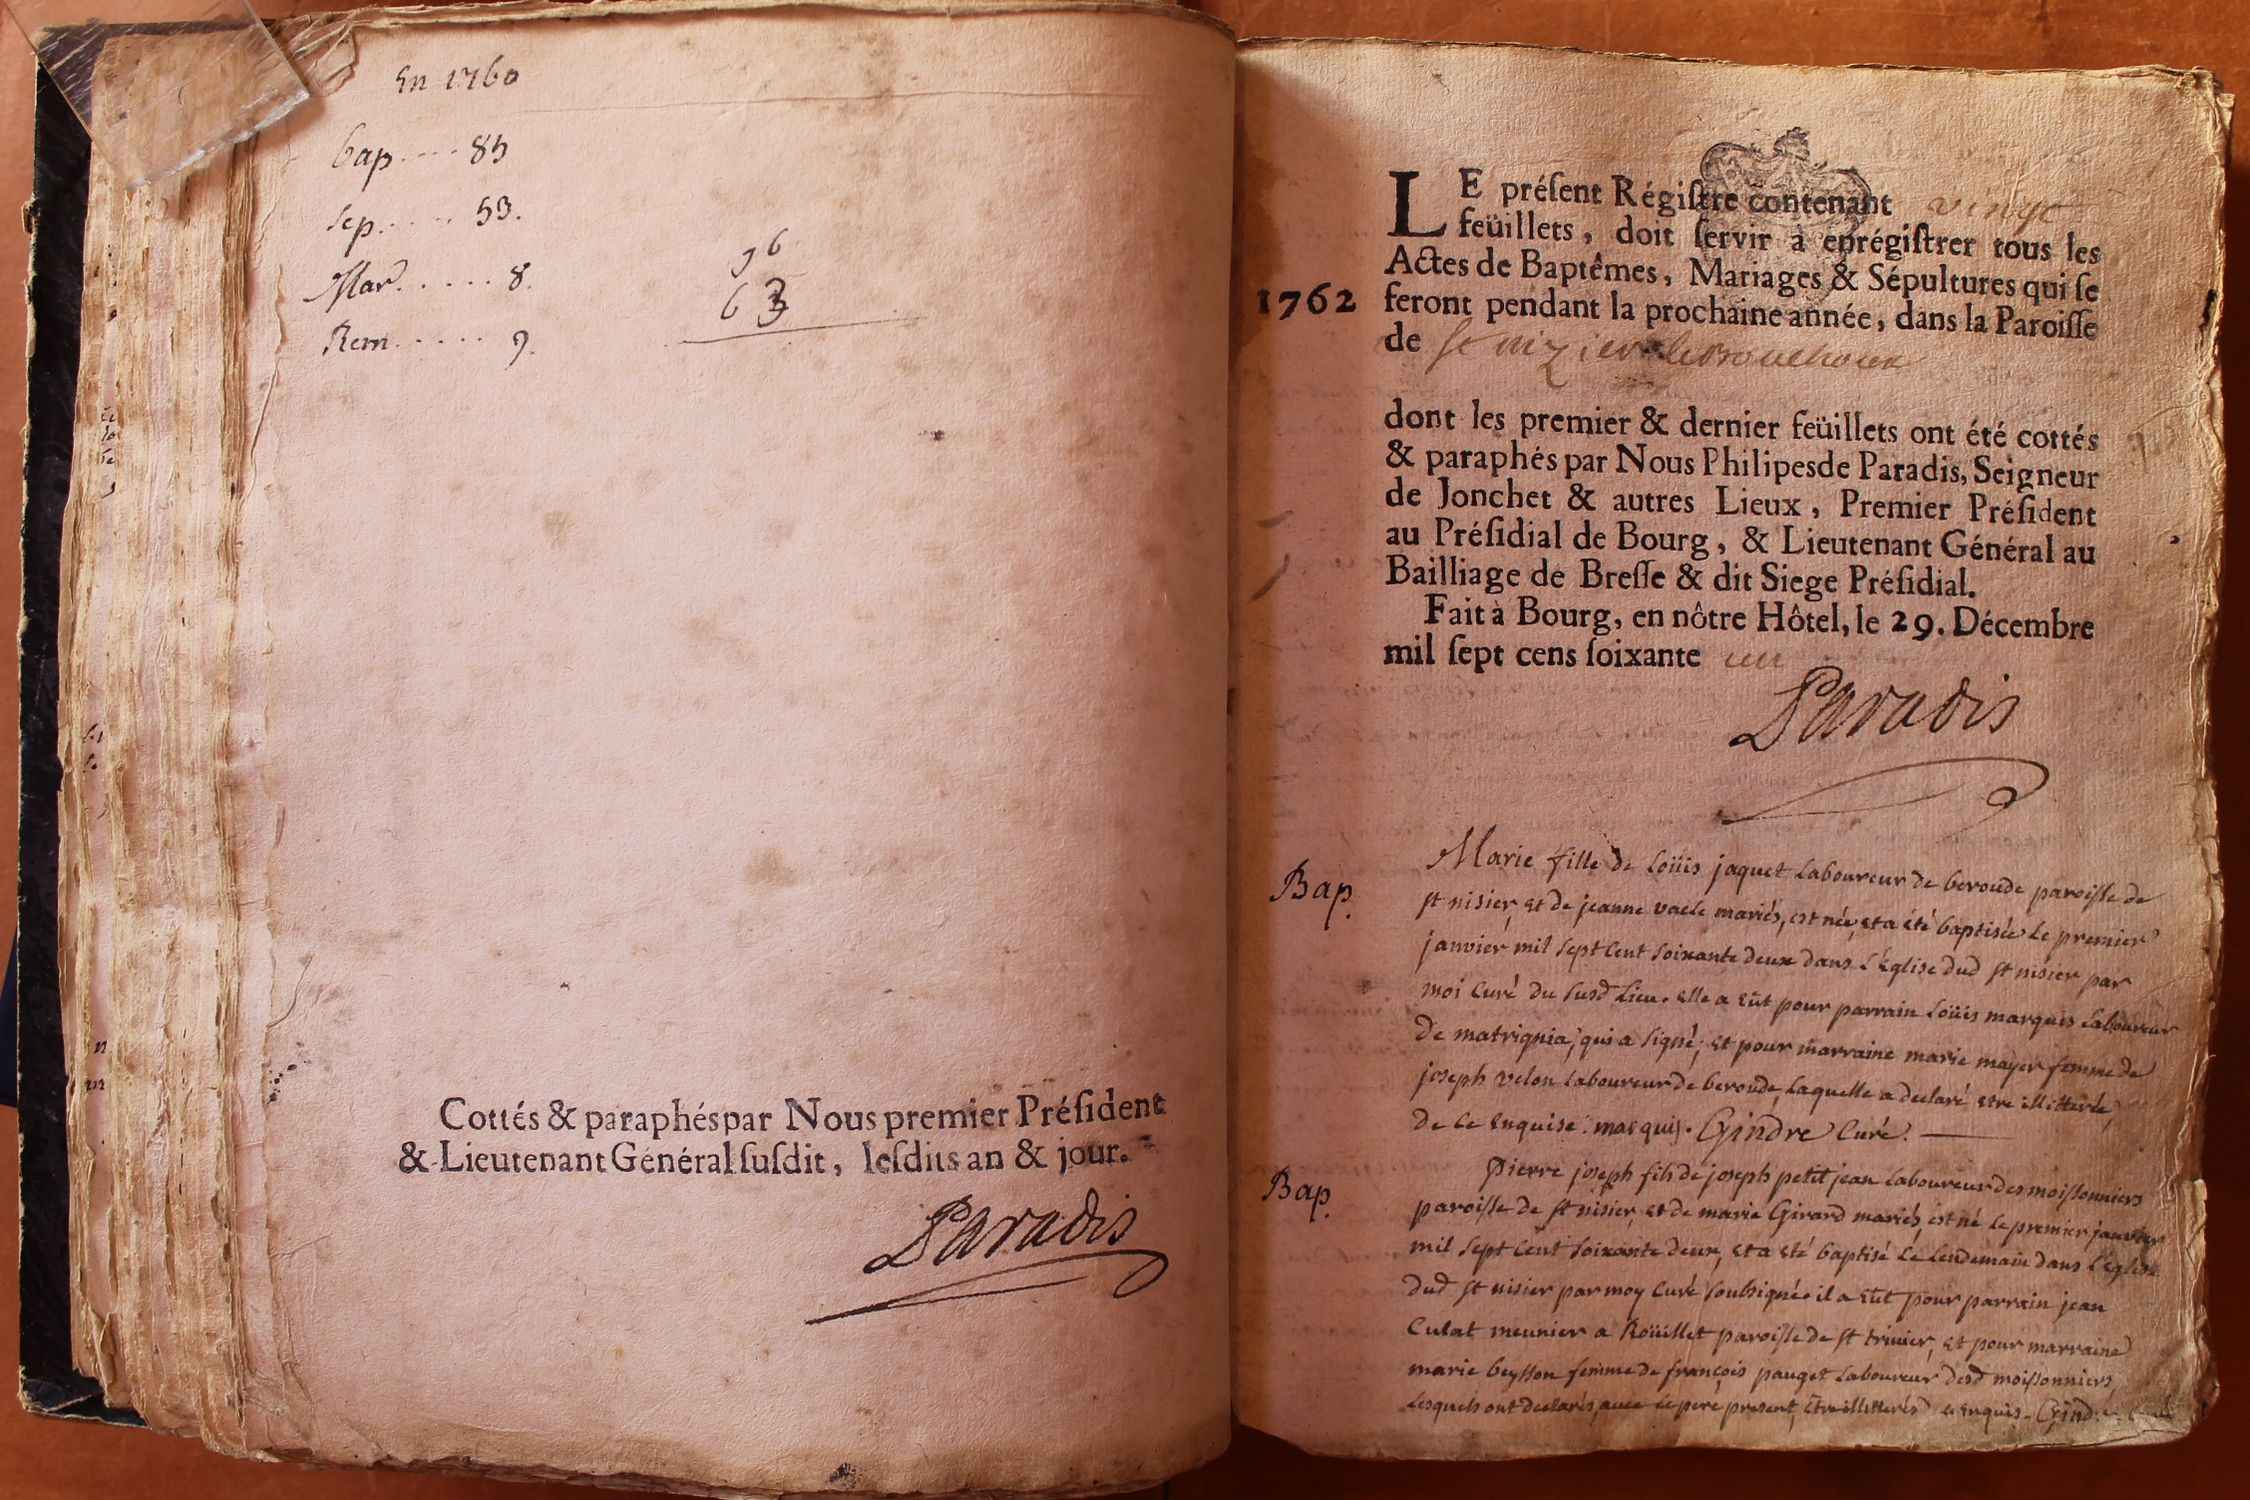 En 1760
bap .... 85
sep ..... 53.
Mar ...... 8.
Rem ...... 9.
96
63
Cottés & paraphés par Nous premier Préſident
& Lieutenant Général ſuſdit, leſdits an & jour.
Paradis
LE préſent Régiſtre contenant vingt
feüillets, doit ſervir à enrégiſtrer tous les
Actes de Baptêmes, Mariages & Sépultures qui ſe
1762 feront pendant la prochaine année, dans la Paroiſſe
de St nizier le Bouchoux
dont les premier & dernier feüillets ont été cottés
& paraphés par Nous Philipes de Paradis, Seigneur
de Jonchet & autres Lieux, Premier Préſident
au Préſidial de Bourg, & Lieutenant Général au
Bailliage de Breſſe & dit Siege Préſidial.
Fait à Bourg, en nôtre Hôtel, le 29. Décembre
mil ſept cens ſoixante un
Paradis
Bap. Marie fille de Loüis jaquet Laboureur de beroude paroisse de
st nisier, et de jeanne vacle mariés, est née, et a été baptisée Le premier
janvier mil sept cent soixante deux dans L'Eglise dud st nisier par
moi curé du susd Lieu. elle a eüt pour parrain Loüis marquis Laboureur
de matrignia, qui a signé; et pour marraine marie mayer femme de
joseph velon Laboureur de beroude, Laquelle a declaré etre illitterée,
de ce enquise. marquis. Gindre Curé.
Bap. Pierre joseph fils de joseph petit jean Laboureur des moissonniers
paroisse de st nisier, et de marie Girard mariés, est né le premier janvier
mil sept cent soixante deux, et a eté baptisé Le Lendemain dans l'Eglise
dud st nisier par moy Curé soubsigné. il a eüt pour parrain jean
Culat meunier a Roüillet paroisse de st trivier, et pour marraine
marie beysson femme de françois pauget Laboureur desd moissonniers,
Lesquels ont declarés, avec Le pere present, etre illitterés de ce enquis. Gindre Curé